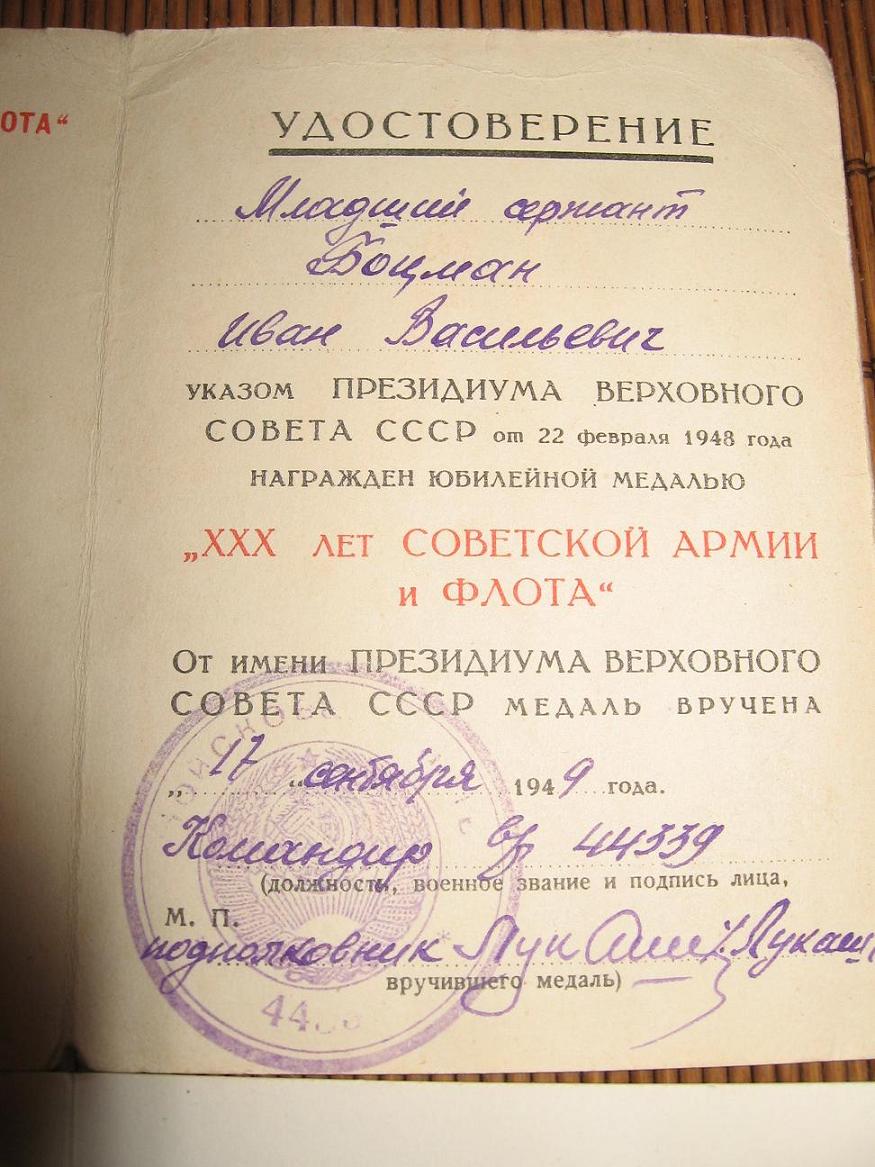 ОТА“
УДОСТОВЕРЕНИЕ
Младший сержант
Боцман
Иван Васильевич
УКАЗОМ ПРЕЗИДИУМА ВЕРХОВНОГО
СОВЕТА СССР от 22 февраля 1948 года
НАГРАЖДЕН ЮБИЛЕЙНОЙ МЕДАЛЬЮ
„XXX ЛЕТ СОВЕТСКОЙ АРМИИ
И ФЛОТА“
ОТ ИМЕНИ ПРЕЗИДИУМА ВЕРХОВНОГО
СОВЕТА СССР МЕДАЛЬ ВРУЧЕНА
„17“ сентября 1949 года.
Командир в/ч 44339
(должность, военное звание и подпись лица,
М. П.
подполковник /Лукаш
вручившего медаль)